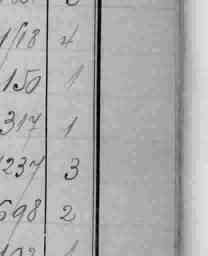 1/18 4
150 1
317 1
237 3
698 2